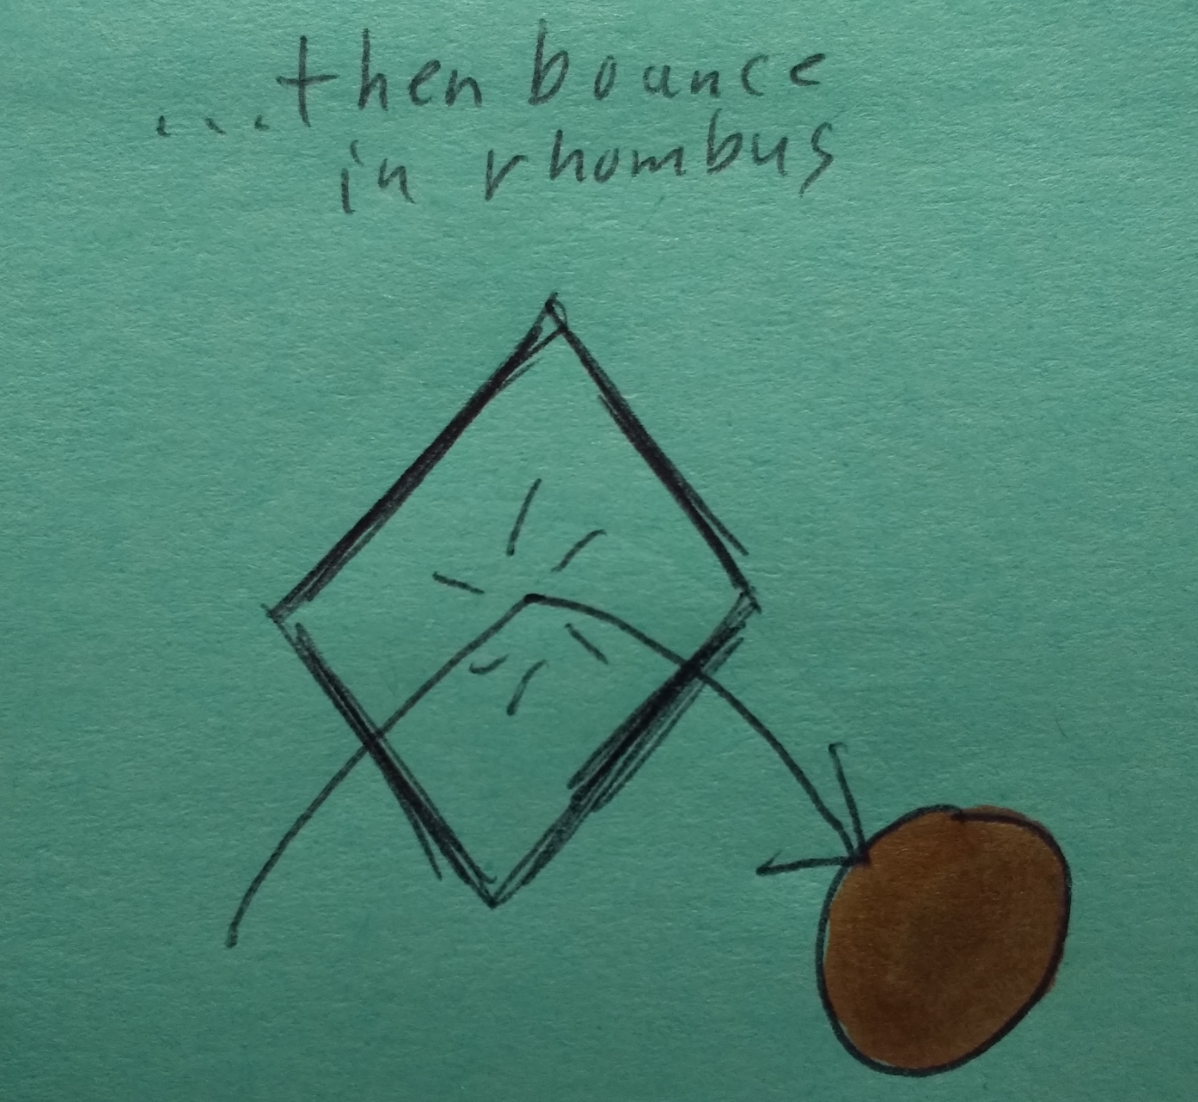 ...then bounce
in rhombus